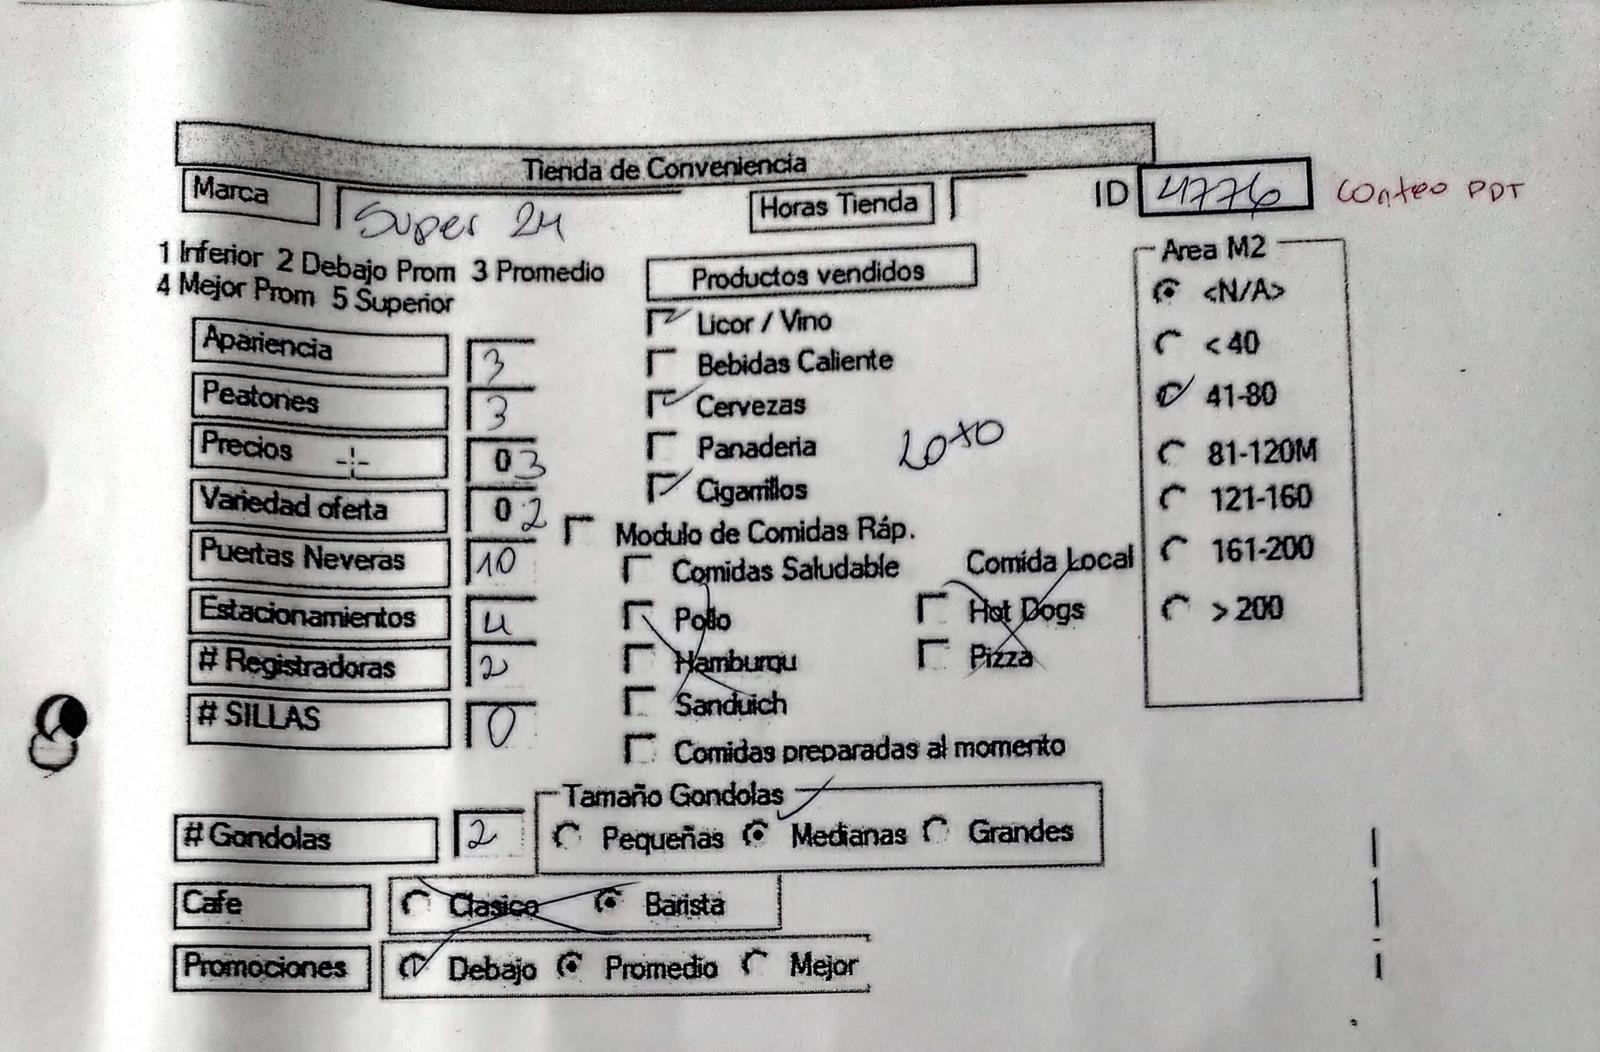 Tienda de Conveniencia
Marca Super 24 Horas Tienda ID 4776 Conteo PDT
1 Inferior 2 Debajo Prom 3 Promedio
4 Mejor Prom 5 Superior
Productos vendidos
Area M2
<N/A>
< 40
41-80
81-120M
121-160
161-200
> 200
Apariencia 3
Peatones 3
Precios 0 3
Variedad oferta 0 2
Puertas Neveras 10
Estacionamientos 4
# Registradoras 2
# SILLAS 0
Licor / Vino
Bebidas Caliente
Cervezas
Panaderia
Cigarrillos
Loto
Modulo de Comidas Ráp.
Comidas Saludable Comida Local
Pollo Hot Dogs
Hamburqu Pizza
Sanduich
Comidas preparadas al momento
Tamaño Gondolas
# Gondolas 2 Pequeñas Medianas Grandes
Cafe Clasico Barista
Promociones Debajo Promedio Mejor